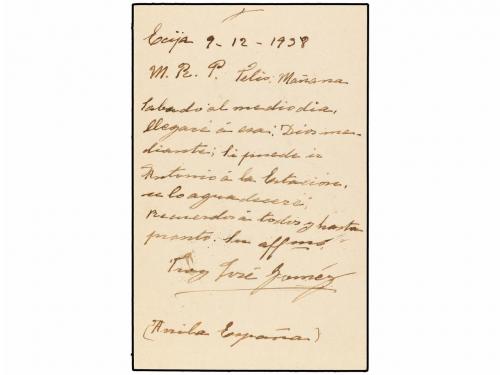 Ecija 9-12-1938
M. R. P. Félix: Mañana
Sabado al mediodia,
llegaré á esa; Dios me-
diante; Si puede ir
Antonio á la Estación,
se lo agradeceré;
recuerdos á todos y hasta
pronto. Su affmo.
Fray José Gómez
(Arriba España)